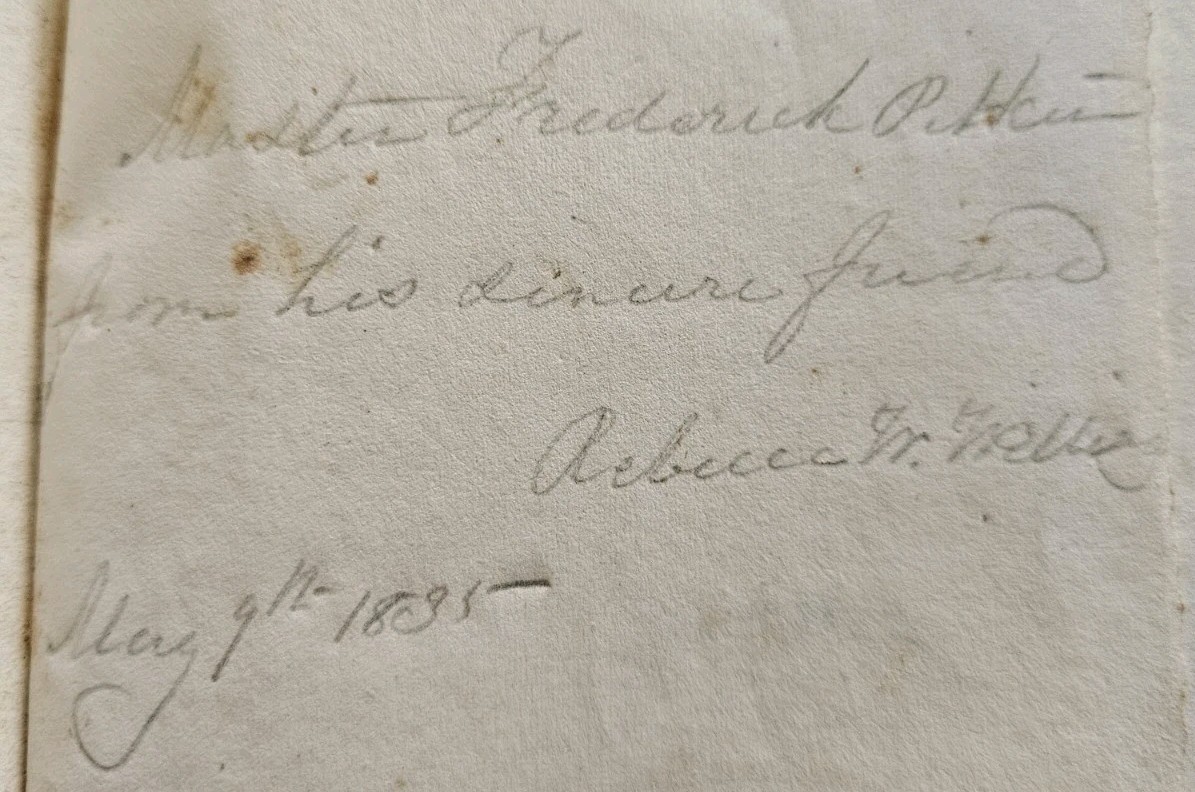 Master Frederick Pitkin
from his sincere friend
Rebecca W.
May 9th 1835